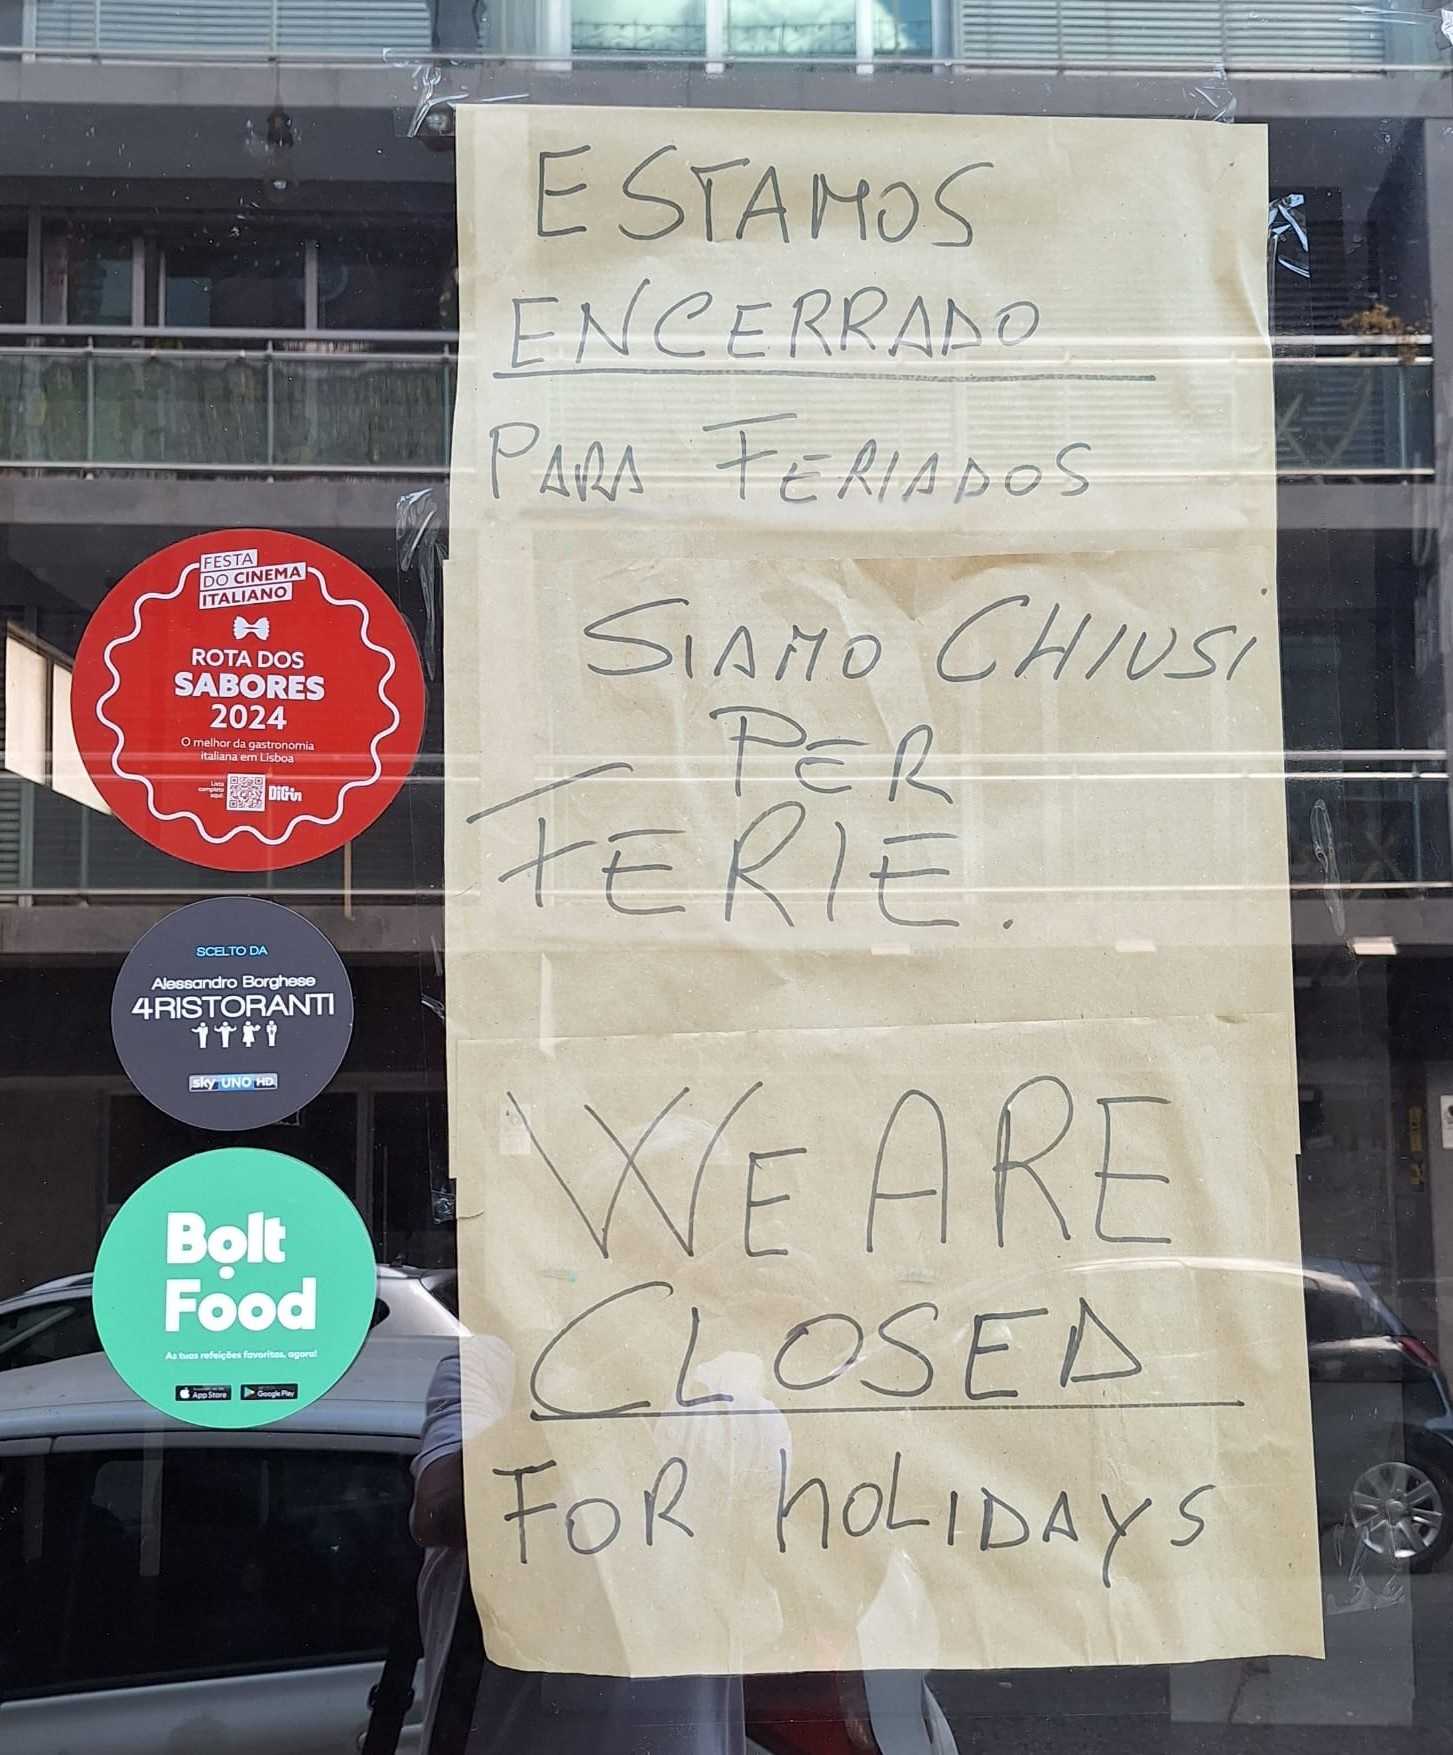 ESTAMOS
ENCERRADO
PARA FERIADOS
SIAMO CHIUSI
PER
FERIE.
WE ARE
CLOSED
FOR hOLIDAYS
FESTA
DO CINEMA
ITALIANO
ROTA DOS
SABORES
2024
O melhor da gastronomia
italiana em Lisboa
Lista
completa
aqui:
DIG-in
SCELTO DA
Alessandro Borghese
4RISTORANTI
sky UNO HD
Bolt
Food
As tuas refeições favoritas, agora!
App Store
Google Play